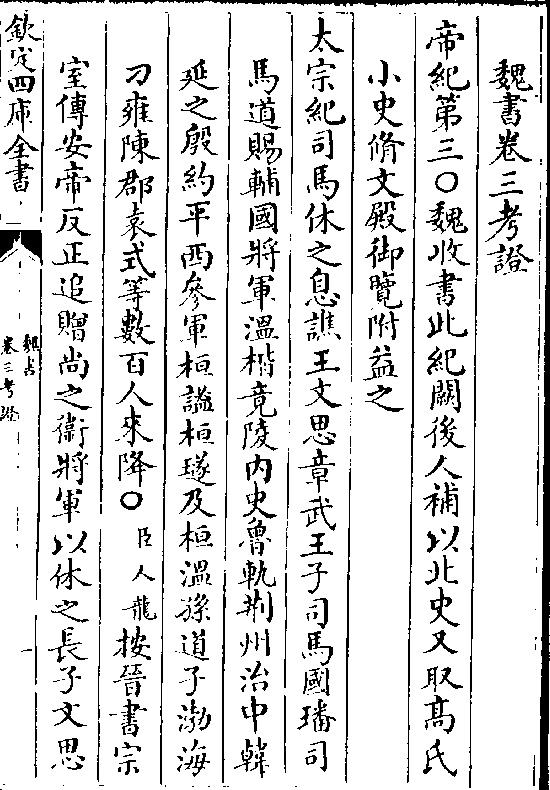 魏書卷三考證
帝紀第三〇魏收書此紀闕後人補以北史又取髙氏
小史脩文殿御覽附益之
太宗紀司馬休之息譙王文思章武王子司馬國璠司
馬道賜輔國將軍溫楷竟陵内史魯軌荆州治中韓
延之殷約平西參軍桓謐桓璲及桓溫孫道子渤海
刁雍陳郡袁式等數百人來降〇臣人龍按晉書宗
室傳安帝反正追贈尚之衞將軍以休之長子文思
欽定四庫全書
魏書
卷三考證
一